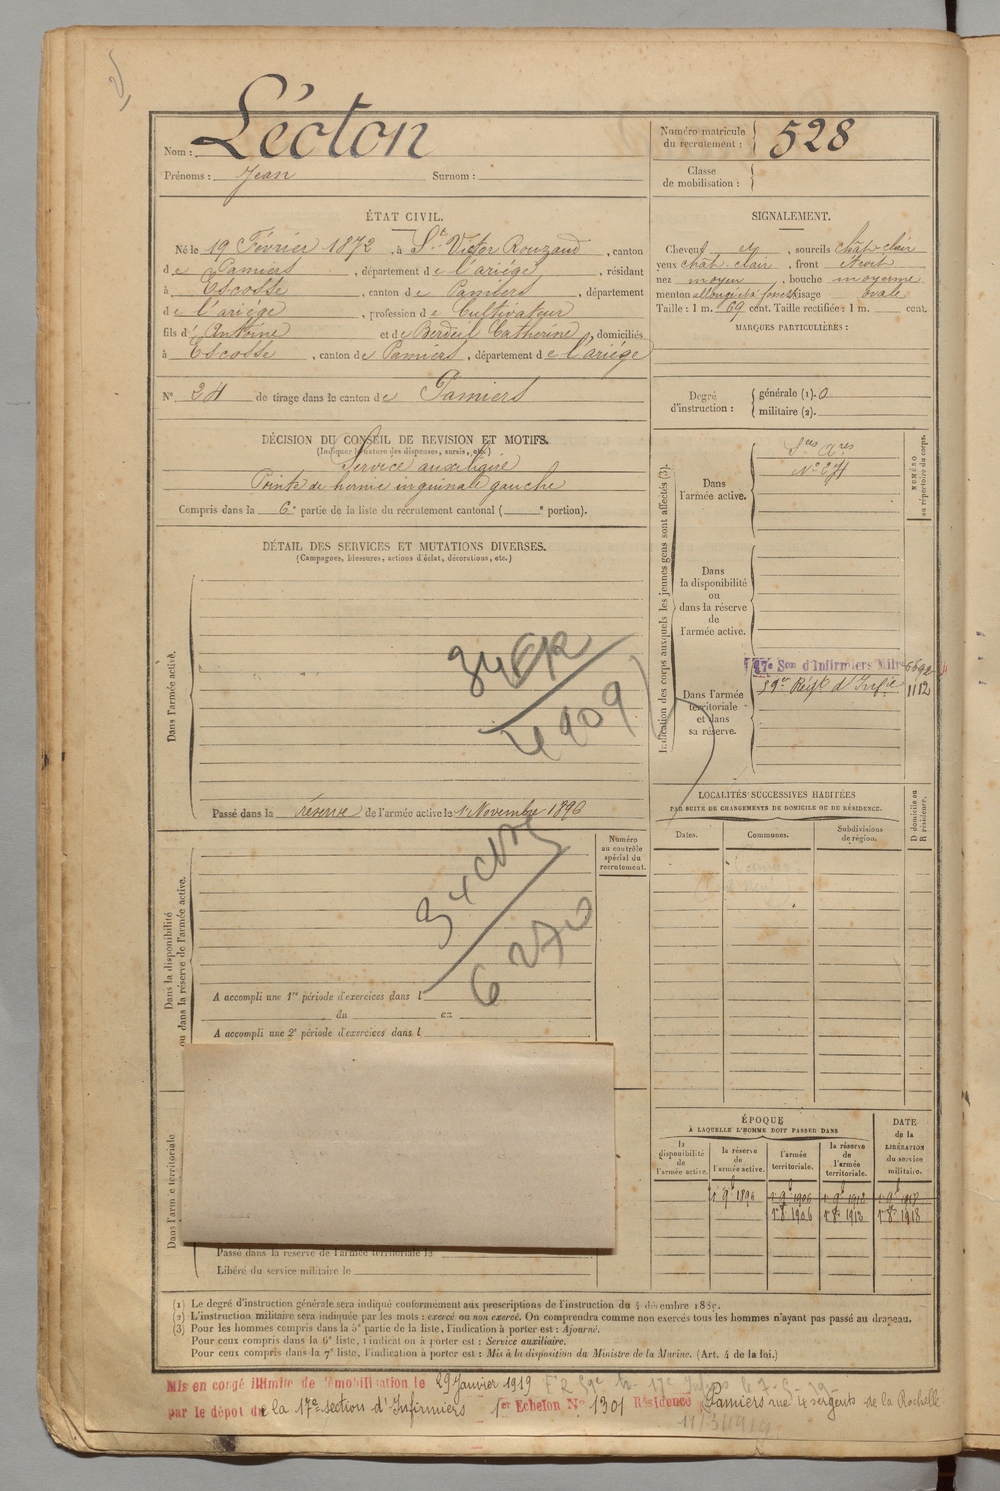 Léoton
Nom :
Prénoms : Jean Surnom :
Numéro matricule
du recrutement :
528
Classe
de mobilisation :
ÉTAT CIVIL.
Né le 19 Février 1872, à St Victor Rouzaud, canton
de Pamiers, département de l'ariége, résidant
à Escosse, canton de Pamiers, département
de l'ariége, profession de Cultivateur
fils d'Antoine et de Berdeil Catherine, domiciliés
à Escosse, canton de Pamiers, département de l'ariége
N° 24 de tirage dans le canton de Pamiers
SIGNALEMENT.
Cheveux et, sourcils chât-clair
yeux chât. clair, front étroit
nez moyen, bouche moyenne
menton visage ovale
Taille : 1 m. 69 cent. Taille rectifiée : 1 m. cent.
MARQUES PARTICULIÈRES :
Degré
d'instruction :
générale (1). 0
militaire (2).
DÉCISION DU CONSEIL DE REVISION ET MOTIFS.
(Indiquer la nature des dispenses, sursis, etc.)
Service auxiliaire
Pointe de hernie inguinale gauche
Compris dans la 6e partie de la liste du recrutement cantonal ( e portion).
DÉTAIL DES SERVICES ET MUTATIONS DIVERSES.
(Campagnes, blessures, actions d'éclat, décorations, etc.)
Dans l'armée active.
34
4909
Passé dans la réserve de l'armée active le 1er Novembre 1896
Indication des corps auxquels les jeunes gens sont affectés (3).
NUMÉRO
au répertoire du corps.
Dans
l'armée active.
Sces Ares
N° 274
Dans
la disponibilité
ou
dans la réserve
de
l'armée active.
Dans l'armée
territoriale
et dans
sa réserve.
17e Son d'Infirmiers Milres
59e Régt d'Infie 1112
LOCALITÉS SUCCESSIVES HABITÉES
PAR SUITE DE CHANGEMENTS DE DOMICILE OU DE RÉSIDENCE.
Dates. Communes. Subdivisions
de région.
D domicile ou
R résidence.
Numéro
au contrôle
spécial du
recrutement.
Dans la disponibilité
ou dans la réserve de l'armée active.
34
6270
A accompli une 1re période d'exercices dans l
du au
A accompli une 2e période d'exercices dans l
Dans l'armée territoriale
Passé dans la réserve de l'armée territoriale le
Libéré du service militaire le
ÉPOQUE
À LAQUELLE L'HOMME DOIT PASSER DANS
la
disponibilité
de
l'armée active.
la réserve
de
l'armée active.
l'armée
territoriale.
la réserve
de
l'armée
territoriale.
DATE
de la
LIBÉRATION
du service
militaire.
1r 9b 1896 1r 9b 1906 1r 9b 1912 1r 9b 1918
1r 8b 1906 1r 8b 1912 1r 8b 1918
(1) Le degré d'instruction générale sera indiqué conformément aux prescriptions de l'instruction du 4 décembre 1889.
(2) L'instruction militaire sera indiquée par les mots : exercé ou non exercé. On comprendra comme non exercés tous les hommes n'ayant pas passé au drapeau.
(3) Pour les hommes compris dans la 5e partie de la liste, l'indication à porter est : Ajourné.
Pour ceux compris dans la 6e liste, l'indication à porter est : Service auxiliaire.
Pour ceux compris dans la 7e liste, l'indication à porter est : Mis à la disposition du Ministre de la Marine. (Art. 4 de la loi.)
Mis en congé illimité de démobilisation le 29 Janvier 1919
par le dépot de la 17e section d'Infirmiers 1er Echelon N° 1301 Résidence Pamiers rue 4 sergents de la Rochelle